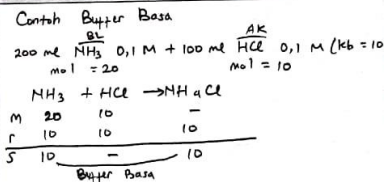 Contoh Buffer Basa
BL AK
200 ml NH3 0,1 M + 100 ml HCl 0,1 M (kb = 10
mol = 20 mol = 10
NH3 + HCl → NH4Cl
M 20 10 -
r 10 10 10
S 10 - 10
Buffer Basa